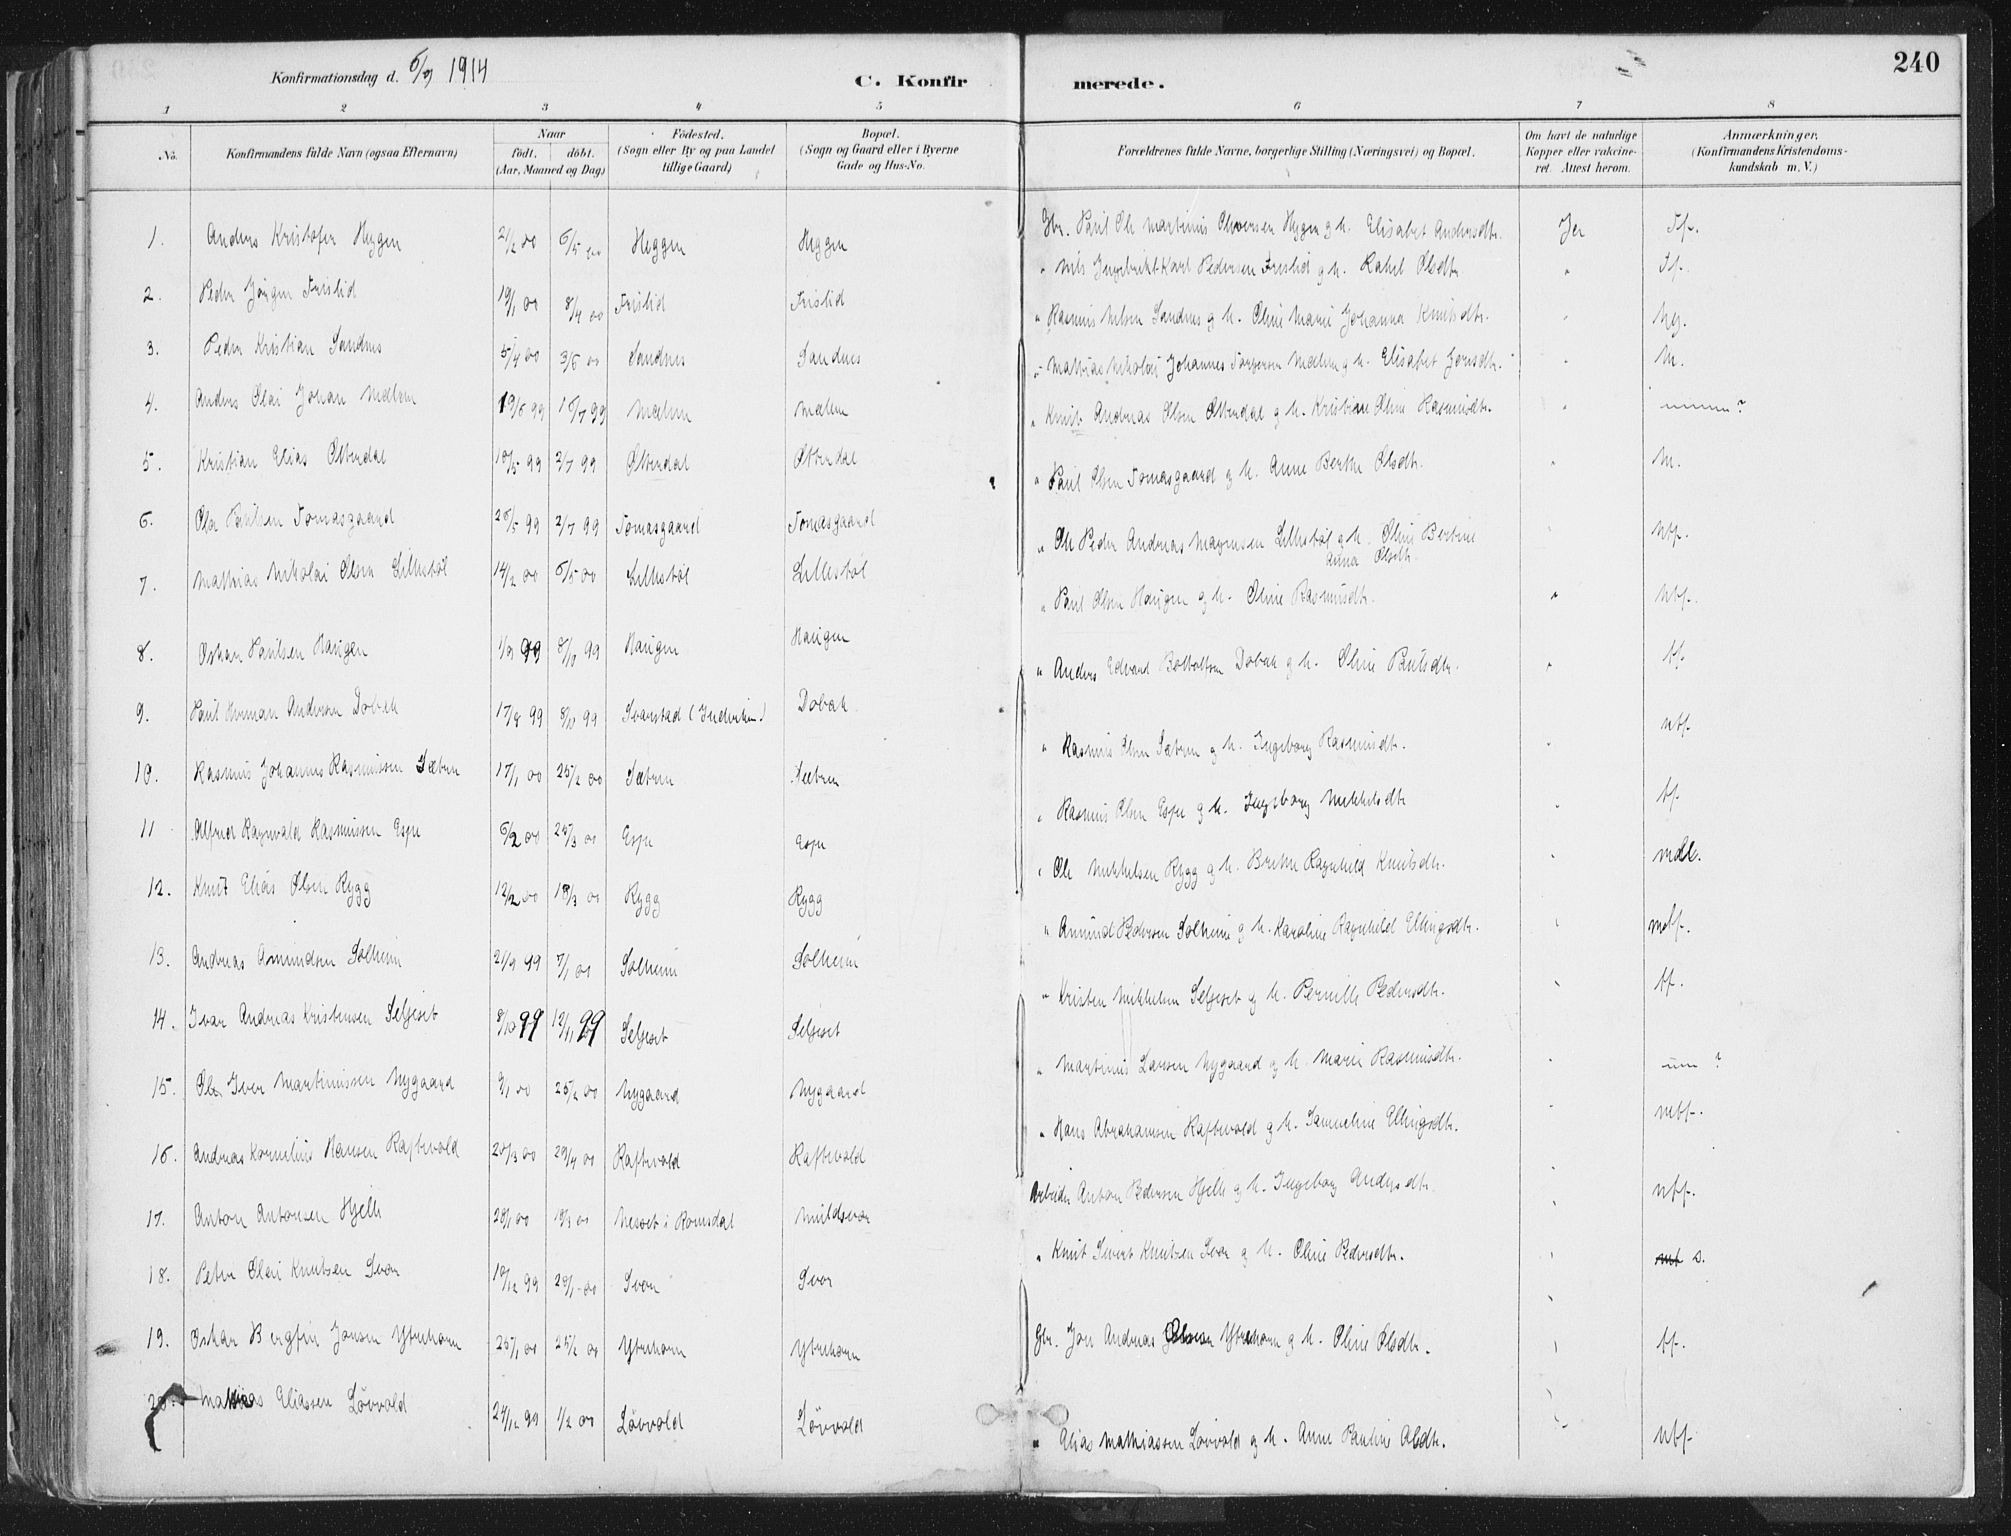 Konfirmationsdag d. 6/9 1914
C. Konfirmerede.
240
1 2 3 4 5 6 7 8
No.
Konfirmandens fulde Navn (ogsaa Efternavn)
Naar
födt. döbt.
(Aar, Maaned og Dag)
Födested.
(Sogn eller By og paa Landet
tillige Gaard)
Bopæl.
(Sogn og Gaard eller i Byerne
Gade og Hus-No.
Forældrenes fulde Navne, borgerlige Stilling (Næringsvei) og Bopæl.
Om havt de naturlige
Kopper eller vakcine-
ret. Attest herom.
Anmærkninger.
(Konfirmandens Kristendoms-
kundskab m. V.)
1. Anders Kristofer Heggen 21/2 00 6/5 00 Heggen Heggen Gbr. Paul Ole Martinus Heggen g h. Elisabet Andersdtr. Ja Tf.
2. Peder Jörgen Fristid 19/1 00 8/4 00 Fristid Fristid " Nils Ingebrikt Karl Pedersen Fristid g h. Rakel Olsdtr. " Tf.
3. Peder Kristian Sandnes 5/4 00 3/6 00 Sandnes Sandnes " Rasmus Nilsen Sandnes g h. Oline Marie Johanna Knutsdtr. " Mg.
4. Anders Olai Johan Mælen 19/6 99 16/7 99 Mælen Mælen " Mathias Nikolai Johannes Torgersen Mælen g h. Elisabet Jonsdtr. " M.
5. Kristian Elias Otterdal 18/5 99 2/7 99 Otterdal Otterdal " Knut Andreas Olsen Otterdal g h. Kristiane Oline Rasmusdtr. "
6. Ola Paulsen Tomasgaard 28/5 99 2/7 99 Tomasgaard Tomasgaard " Paul Olsen Tomasgaard g h. Anne Berthe Olsdtr. " M.
7. Mathias Nikolai Olsen Lillestöl 14/2 00 6/5 00 Lillestöl Lillestöl " Ole Peder Andreas Magnusen Lillestöl g h. Oline Bertine
Anna Olsdtr. " Mtf.
8. Oskar Paulsen Haugen 1/9 99 8/10 99 Haugen Haugen " Paul Olsen Haugen g h. Oline Rasmusdtr. " Mtf.
9. Paul Herman Andersen Dobak 17/9 99 8/10 99 Svarstad Dobak " Anders Edvard Dobak g h. Oline Paulsdtr. " tf.
10. Rasmus Johannes Rasmussen Sætren 17/1 00 25/2 00 Sætren Sætren " Rasmus Olsen Sætren g h. Ingeborg Rasmusdtr. " Mtf.
11 Alfred Ragnvald Rasmussen Espe 6/2 00 25/3 00 Espe Espe " Rasmus Olsen Espe g h. Ingeborg Mikkelsdtr. " tf.
12. Knut Elias Olsen Rygg 12/2 00 18/3 00 Rygg Rygg " Ole Mikkelsen Rygg g h. Brethe Ragnhild Knutsdtr. "
13. Andreas Amundsen Solheim 21/9 99 7/1 00 Solheim Solheim " Amund Pedersen Solheim g h. Karoline Ragnhild Ellingsdtr. " mtf.
14. Ivar Andreas Kristensen Seljeset 8/10 99 12/11 99 Seljeset Seljeset " Kristen Mikkelsen Seljeset g h. Pernille Pedersdtr. " tf.
15. Ole Iver Martinussen Nygaard 9/1 00 25/2 00 Nygaard Nygaard " Martinus Larsen Nygaard g h. Marie Rasmusdtr. "
16. Andreas Kornelius Hansen Raftevold 20/3 00 29/4 00 Raftevold Raftevold " Hans Abrahamsen Raftevold g h. Samueline Ellingsdtr. " mtf.
17. Anton Antonsen Hjelle 28/1 00 18/3 00 Nesset i Romsdal Muldsvor Arbeider Anton Pedersen Hjelle g h. Ingeborg Andersdtr. " mtf.
18. Peter Olai Knutsen Svor 10/12 99 28/1 00 Svor Svor " Knut Sivert Knutsen Svor g h. Oline Pedersdtr. " s.
19. Oskar Bergfin Jonsen Ytrehorn 25/1 00 25/2 00 Ytrehorn Ytrehorn Gbr. Jon Andreas Olsen Ytrehorn g h. Oline Olsdtr. " tf.
20. Mathias Eliassen Lövvold 24/12 99 1/2 00 Lövvold Lövvold " Elias Mathiassen Lövvold g h. Anne Pauline Olsdtr. " Mtf.